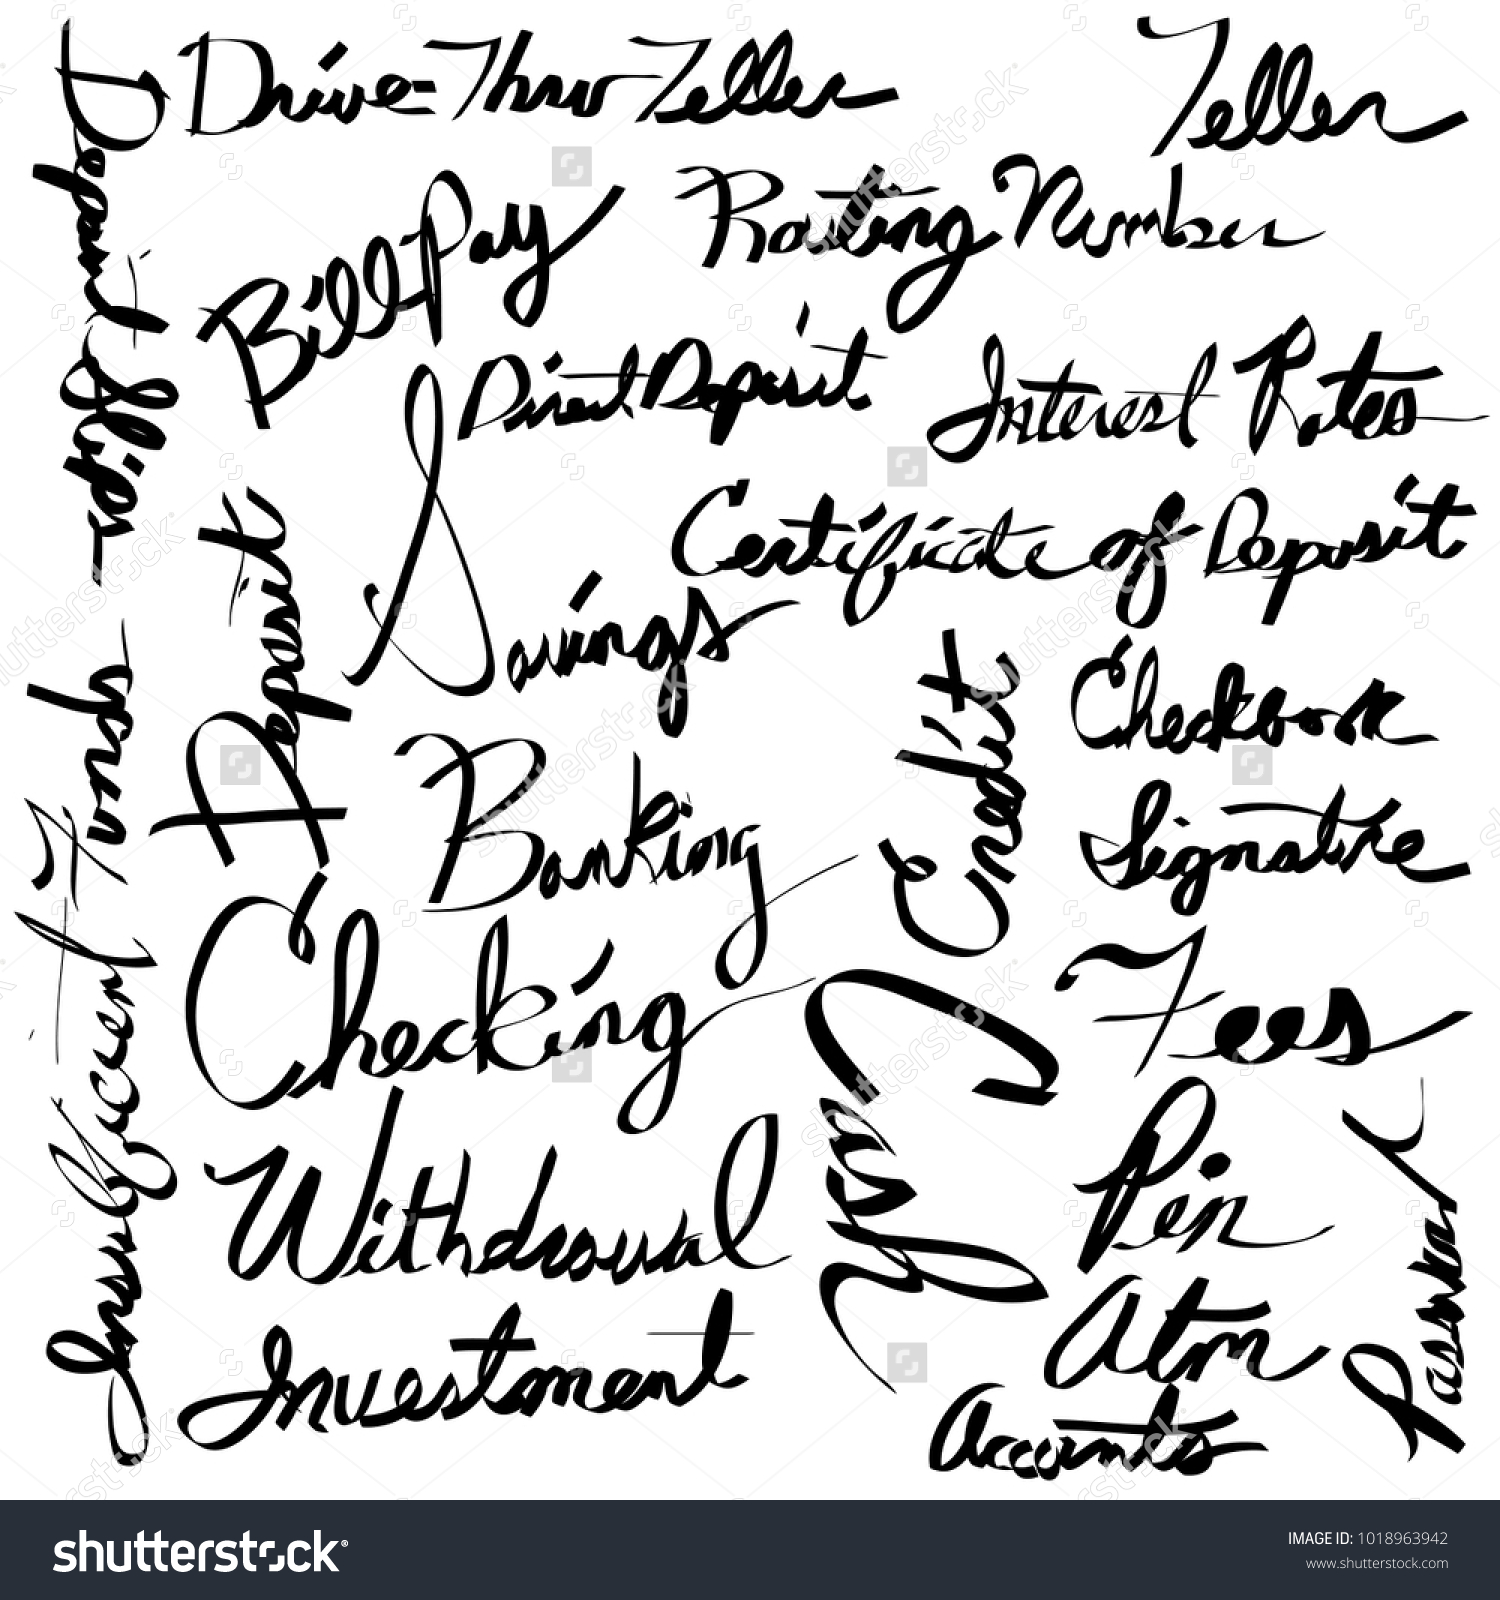 Drive-Thru Teller
Teller
Deposit Slips
Bill Pay
Routing Number
Direct Deposit
Interest Rates
Savings
Certificate of Deposit
Deposit
Credit
Checkbook
Insufficient Funds
Banking
Signature
Checking
Cash
Fees
Withdrawal
Pin
Password
Investment
Atm
Accounts
shutterstock
IMAGE ID: 1018963942
www.shutterstock.com